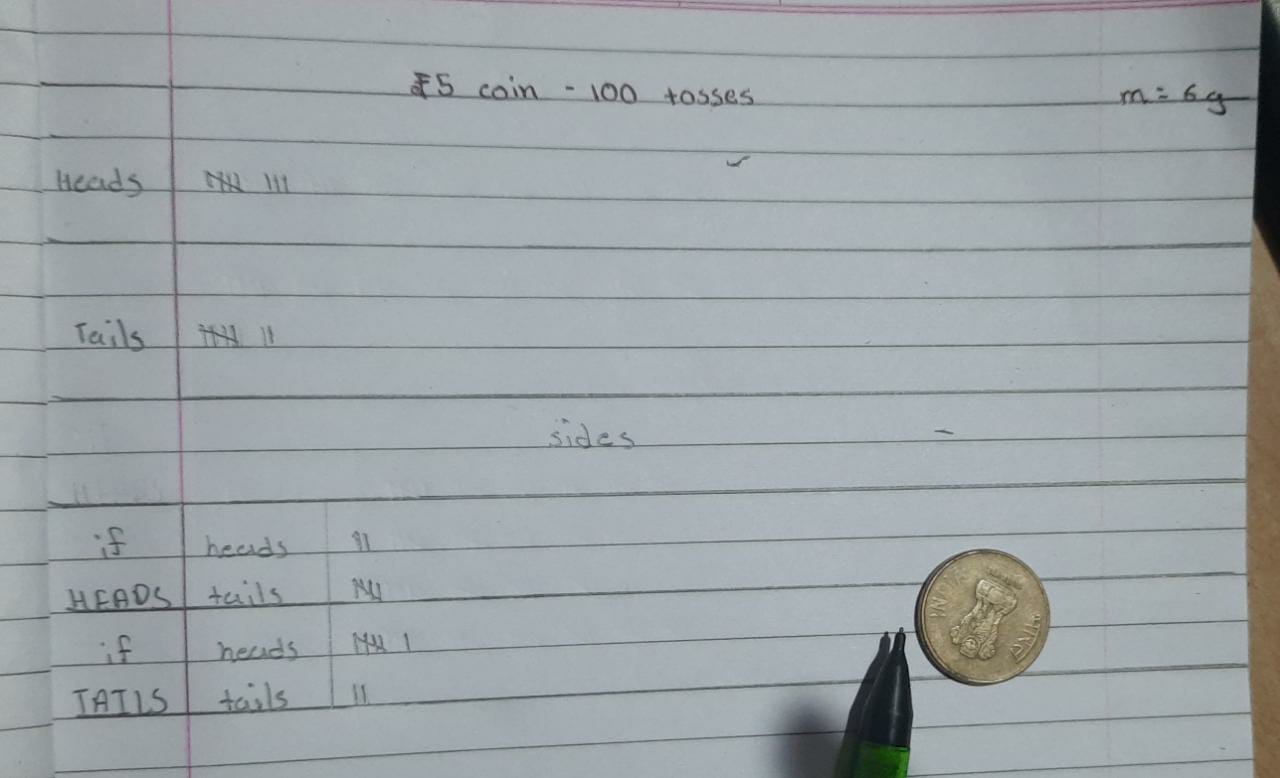 ₹5 coin - 100 tosses
m = 6g
Heads 卌 |||
Tails 卌 ||
sides -
if heads ||
HEADS tails 卌
if heads 卌 |
TAILS tails ||